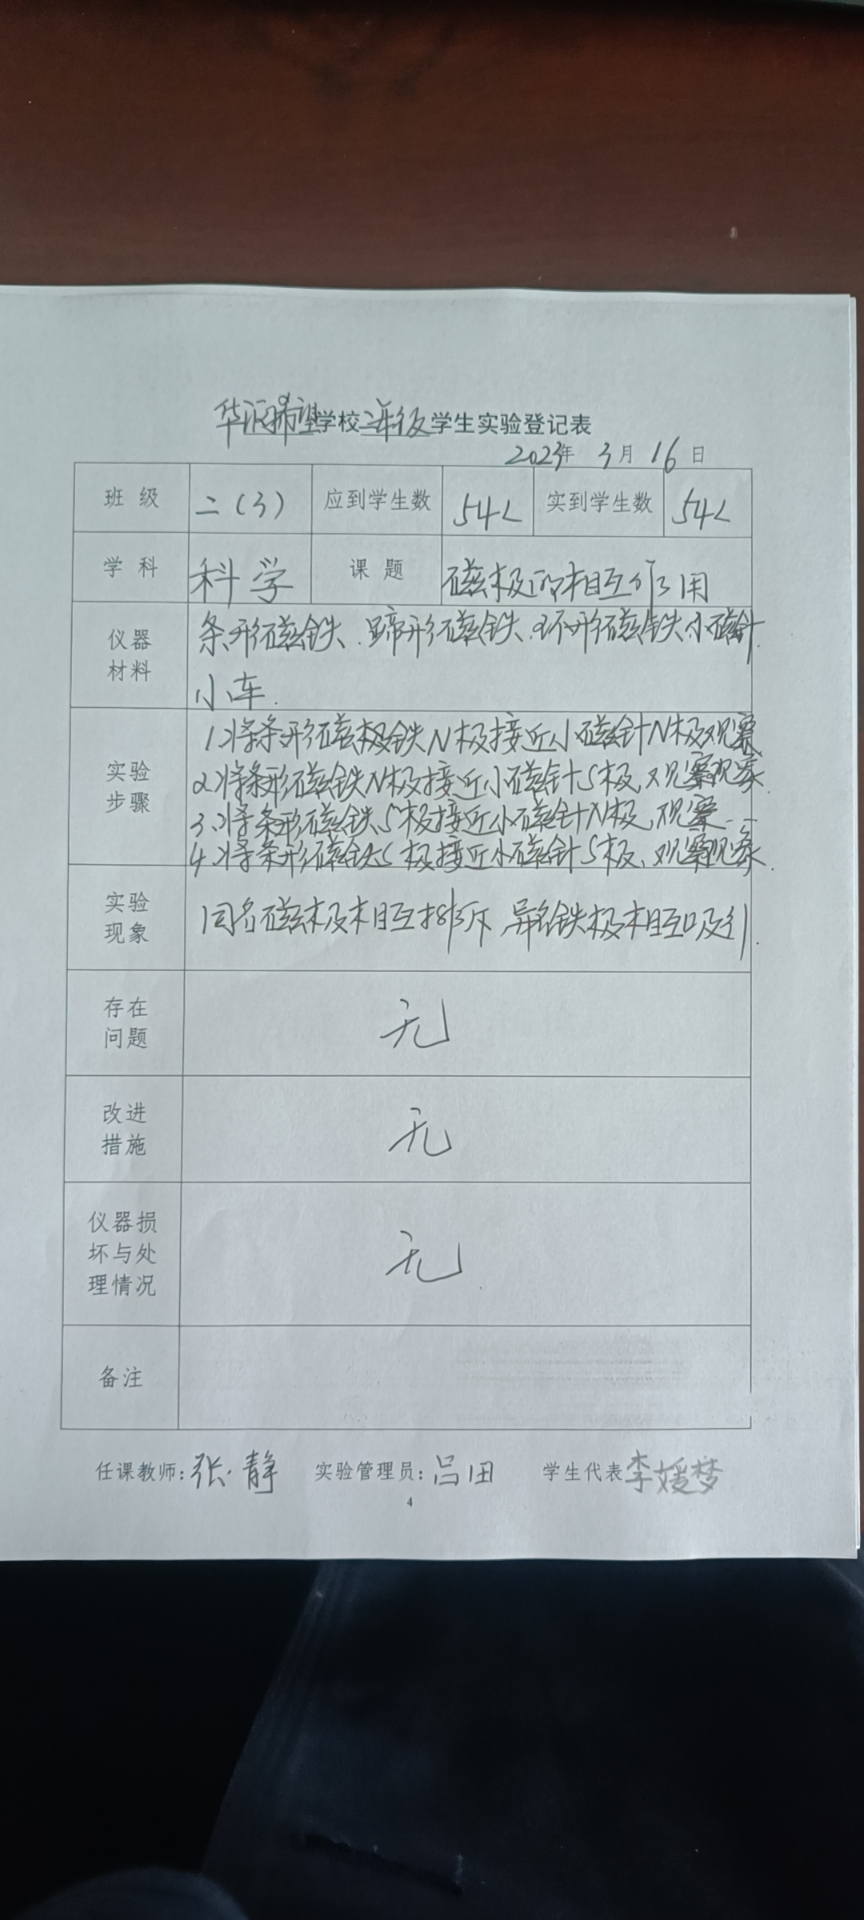 华泾希望学校二年级学生实验登记表
2023年 3月 16日
班 级 二(3) 应到学生数 54人 实到学生数 54人
学 科 科学 课 题 磁极的相互作用
仪器材料 条形磁铁、蹄形磁铁、环形磁铁、小磁针
小车.
实验步骤 1.将条形磁极铁N极接近小磁针N极,观察
2.将条形磁铁N极接近小磁针S极,观察现象.
3.将条形磁铁S极接近小磁针N极,观察...
4.将条形磁铁S极接近小磁针S极,观察现象.
实验现象 同名磁极相互排斥,异名铁极相互吸引.
存在问题 无
改进措施 无
仪器损坏与处理情况 无
备注
任课教师:张静 实验管理员:吕田 学生代表李媛梦
4